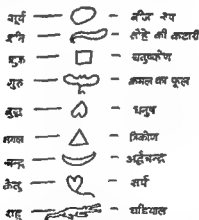 सूर्य — — बीज रूप
शनि — — लोहे की कटारी
शुक्र — — चतुष्कोण
गुरु — — कमल का फूल
बुध — — धनुष
मंगल — — त्रिकोण
चन्द्र — — अर्द्धचन्द्र
केतु — — सर्प
राहु — — घड़ियाल